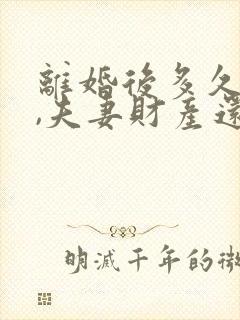 離婚後多久
,夫妻財產還
明滅千年的微